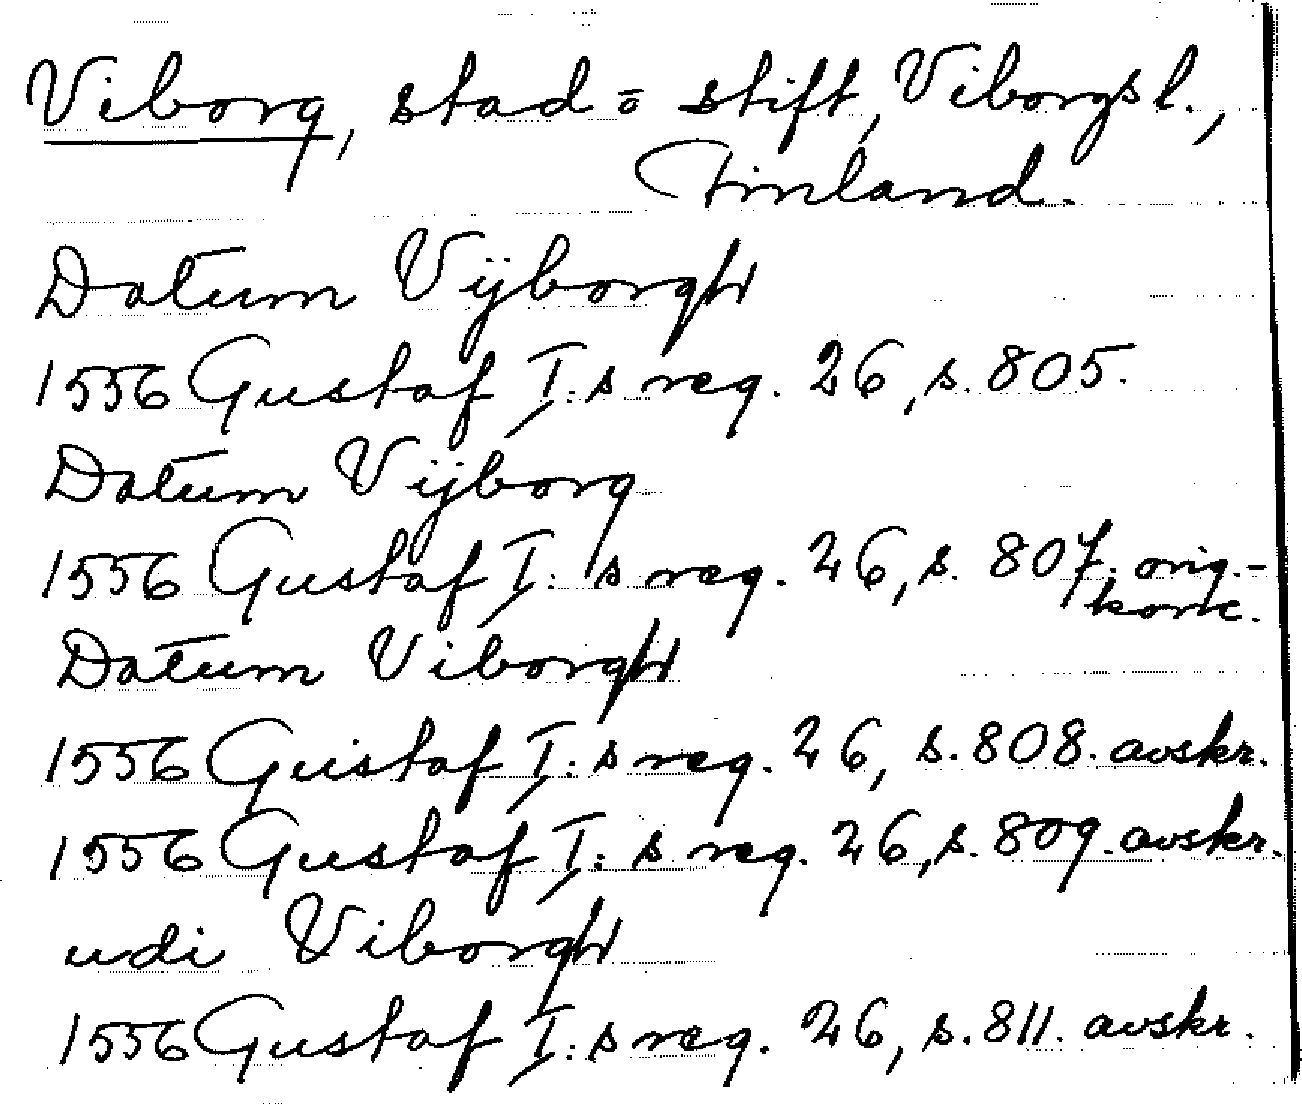 Viborg, stad o stift, Viborgs l.,
Finland.
Datum Vijborgh
1556 Gustaf I:s reg. 26, s. 805.
Datum Vijborg
1556 Gustaf I:s reg. 26, s. 807. orig.-
konc.
Datum Viborgh
1556 Gustaf I:s reg. 26, s. 808. avskr.
1556 Gustaf I:s reg. 26, s. 809. avskr.
udi Viborgh
1556 Gustaf I:s reg. 26, s. 811. avskr.